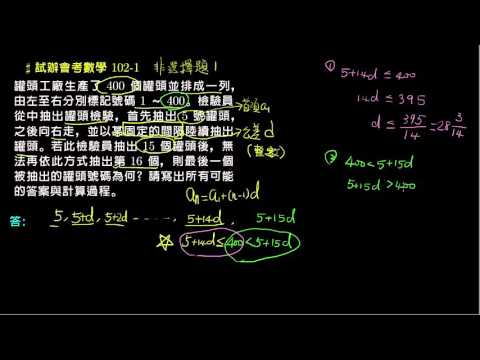 # 試辦會考數學 102-1 非選擇題 1
罐頭工廠生產了 400 個罐頭並排成一列,
由左至右分別標記號碼 1 ~ 400。檢驗員
從中抽出罐頭檢驗,首先抽出 5 號罐頭,
之後向右走,並以某固定的間隔陸續抽出
罐頭。若此檢驗員抽出 15 個罐頭後,無
法再依此方式抽出第 16 個,則最後一個
被抽出的罐頭號碼為何?請寫出所有可能
的答案與計算過程。
首項 a₁
公差 d
(整數)
aₙ=a₁+(n-1)d
答: 5, 5+d, 5+2d ------, 5+14d, 5+15d
☆ 5+14d≤400<5+15d
① 5+14d ≤ 400
14d ≤ 395
d ≤ 395/14 =28 3/14
② 400<5+15d
5+15d >400